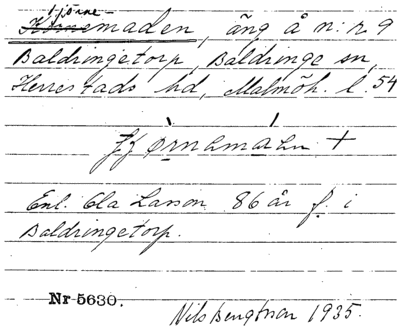 tjörne-
maden, äng å n:r 9
Baldringetorp, Baldringe sn,
Herrestads hd, Malmöh. l. 54
Enl. Ola Larson 86 år f. i
Baldringetorp.
Nr 5630.
Nils Bengtson 1935.